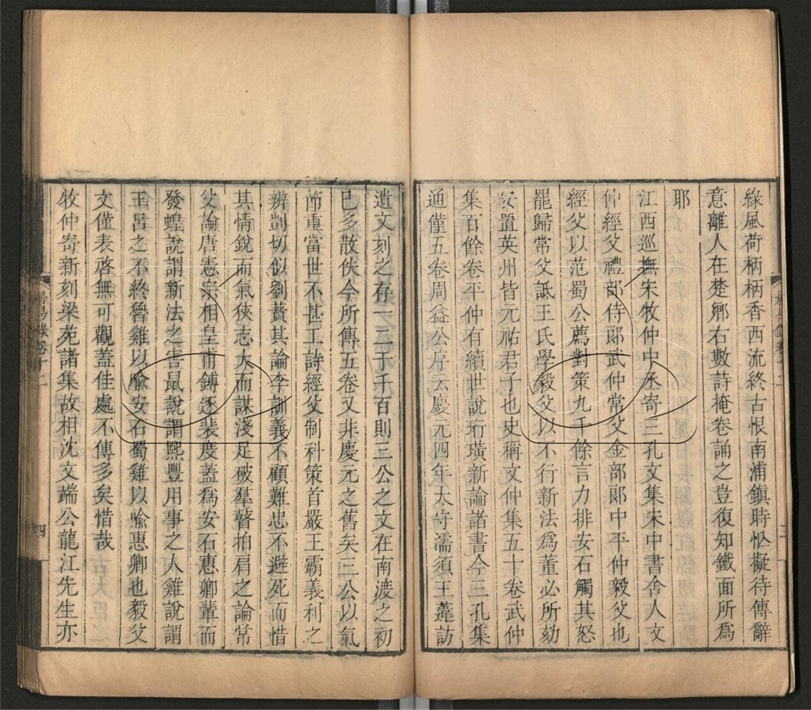 綠風荷柄柄香西流終古恨南浦鎮時忪擬待傳辭
意離人在楚鄉右數詩掩卷誦之豈復知鐵面所為
耶
江西巡撫宋牧仲中丞寄三孔文集宋中書舍人文
仲經父禮部侍郎武仲常父金部郎中平仲毅父也
經父以范蜀公薦對策九千餘言力排安石觸其怒
罷歸常父詆王氏學毅父以不行新法為董必所劾
安置英州皆元祐君子也史稱文仲集五十卷武仲
集百餘卷平仲有續世說珩璜新論諸書今三孔集
通僅五卷周益公序云慶元四年太守濡須王䕫訪
遺文刻之存一二于千百則三公之文在南渡之初
已多散佚今所傳五卷又非慶元之舊矣三公以氣
節重當世不甚工詩經父制科策首嚴王霸義利之
辨剴切似劉蕡其論李訓義不顧難忠不避死而惜
其情銳而氣狹志大而謀淺足破羣瞽拍肩之論常
父論唐憲宗相皇甫鎛逐裴度蓋為安石惠卿輩而
發蝗說謂新法之害鼠說謂熙豐用事之人雞說謂
王呂之不終魯雞以喻安石蜀雞以喻惠卿也毅父
文僅表啓無可觀蓋佳處不傳多矣惜哉
牧仲寄新刻梁苑諸集故相沈文端公龍江先生亦
四